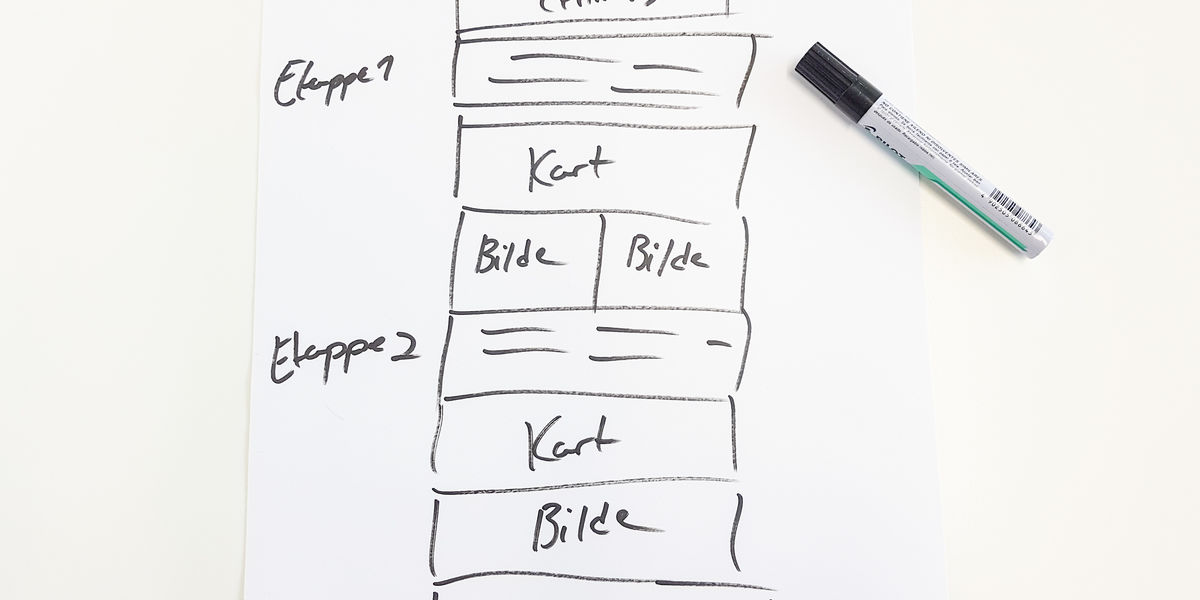 Etappe 1
Kart
Bilde Bilde
Etappe 2
Kart
Bilde
PILOT